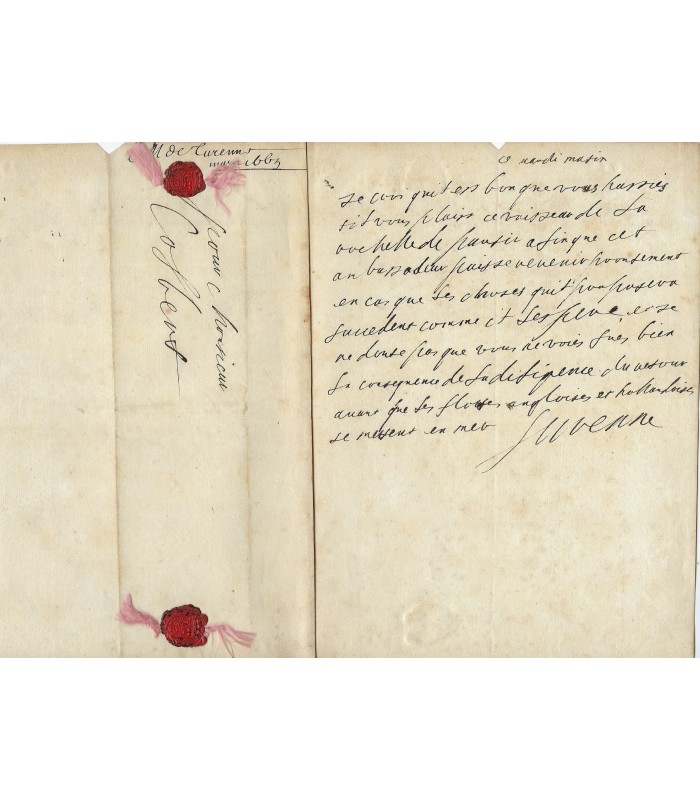 M de Turenne
mars 1665
pour Monsieur
Colbert
ce mardi matin
je crois quil est bon que vous hassies
sil vous plaist ce vaisseau de la
rochelle de partir afin que cet
ambassadeur puisse revenir promtement
en cas que les choses quil proposera
succedent comme il lespere, et je
ne doute pas que vous ne voies fort bien
la consequence de la diligence du retour
avant que les flottes angloises et hollandoises
se mettent en mer
Turenne